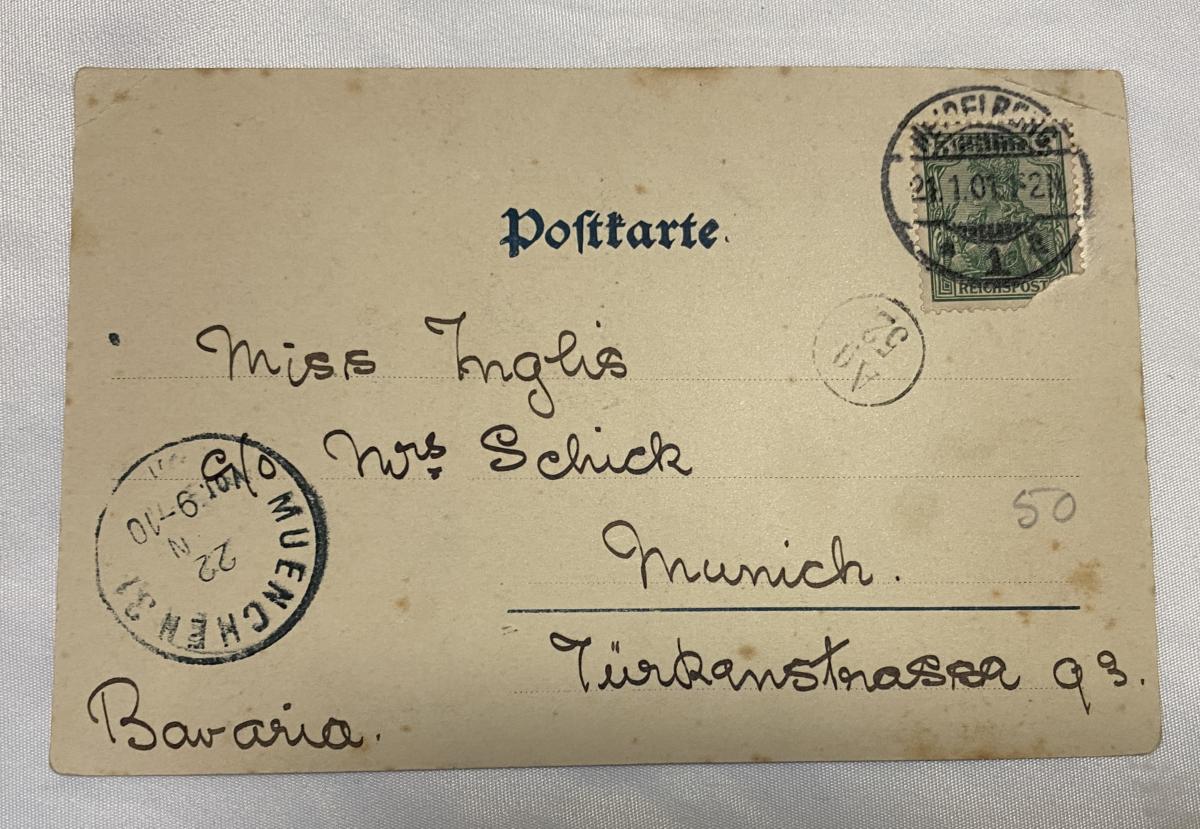 Postkarte.
HEIDELBERG
21.1.01. 1-2N
1
REICHSPOST
Miss Inglis
c/o Mrs Schick
50
Munich.
Türkenstrasse 93.
Bavaria.
MUENCHEN 31
22
N
Vor. 9-10